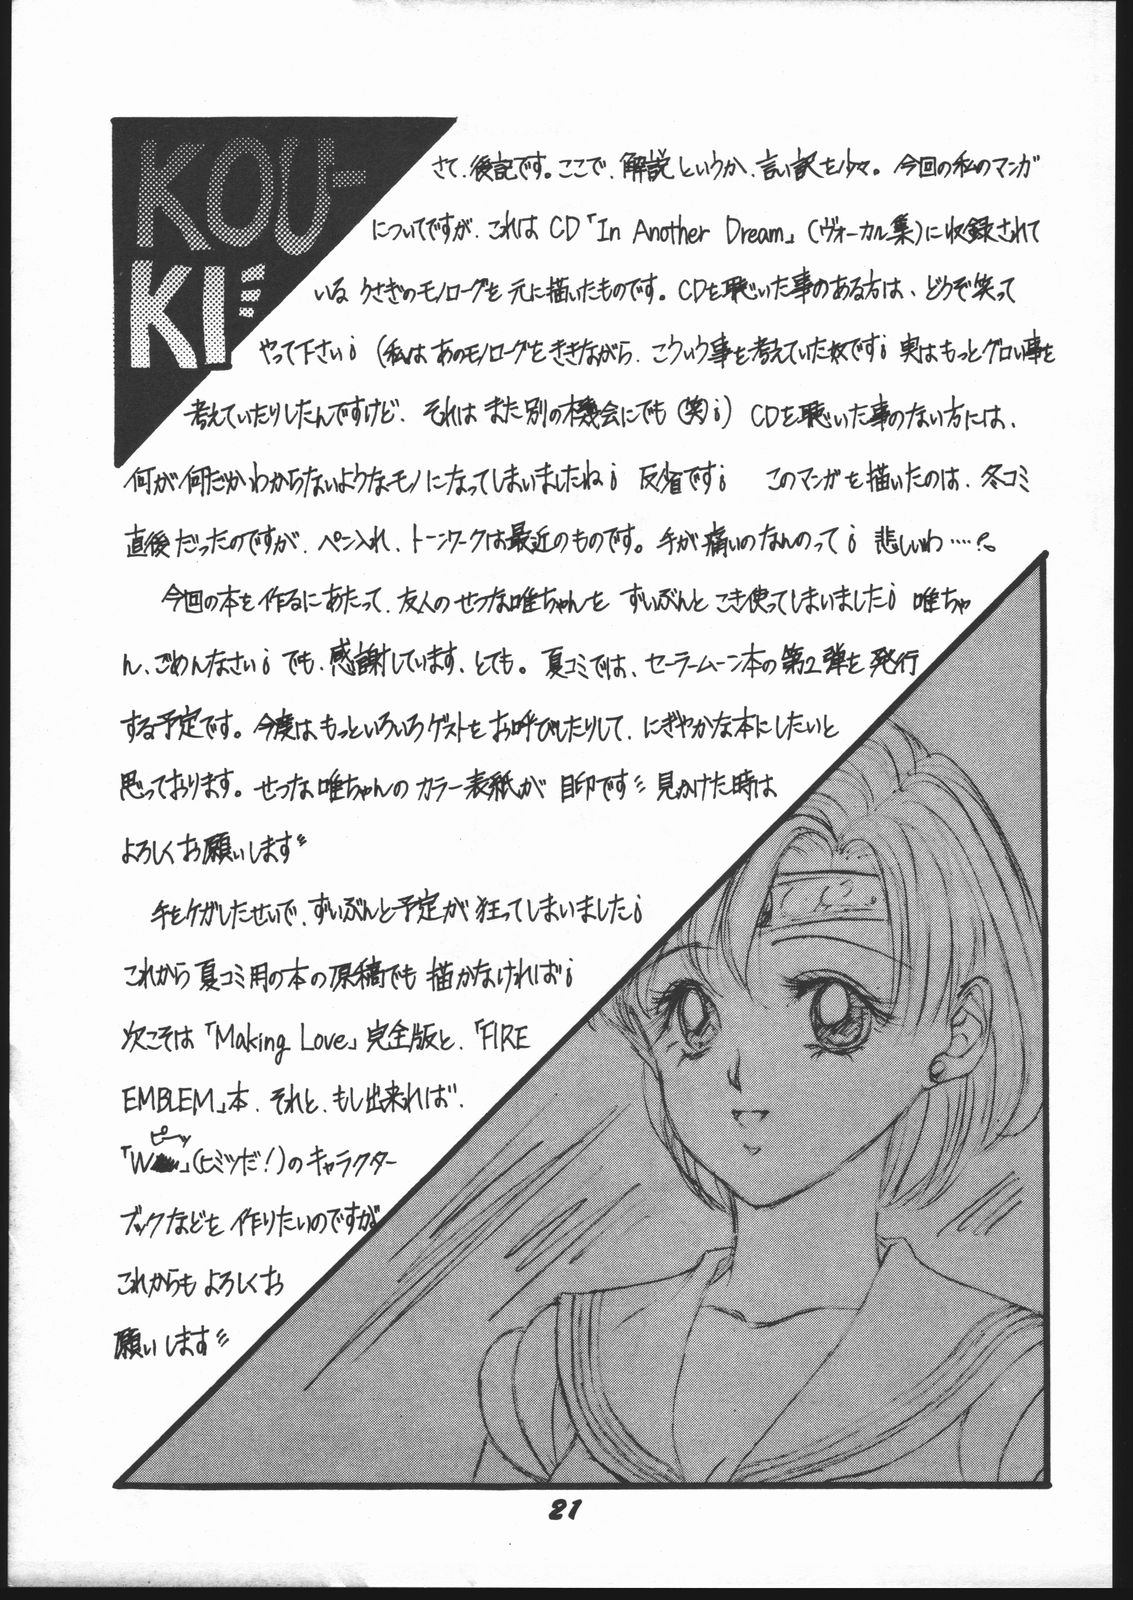 KOU-
KI
さて、後記です。ここで、解説というか、言い訳を少々。今回の私のマンガ
についてですが、これは CD「In Another Dream」(ヴォーカル集)に収録されて
いる うさぎのモノローグを 元に描いたものです。CDを聴いた事のある方は、どうぞ笑って
やって下さい¡ (私は あのモノローグを ききながら、こういう事を考えていた奴です¡ 実はもっとグロい事を
考えていたりしたんですけど、それは また別の機会にでも(笑¡) CDを聴いた事のない方には、
何が何だかわからないようなモノになってしまいましたね¡ 反省です¡ このマンガを描いたのは、冬コミ
直後だったのですが、ペン入れ、トーンワークは最近のものです。手が痛いのなんのって¡ 悲しいわ……?。
今回の本を作るにあたって、友人のせつな唯ちゃんを ずいぶんと こき使ってしまいました¡ 唯ちゃ
ん、ごめんなさい¡ でも、感謝しています、とても。夏コミでは、セーラームーン本の第2弾を発行
する予定です。今度はもっといろいろゲストをお呼びしたりして、にぎやかな本にしたいと
思っております。せつな唯ちゃんの カラー表紙が 目印です〃 見かけた時は
よろしくお願いします〃
手をケガしたせいで、ずいぶんと予定が狂ってしまいました¡
これから夏コミ用の本の原稿でも 描かなければ¡
次こそは「Making Love」完全版と、「FIRE
EMBLEM」本、それと、もし出来れば、
ピーッ
「W」(ヒミツだ!)のキャラクター
ブックなどを 作りたいのですが
これからも よろしくお
願いします〃
21